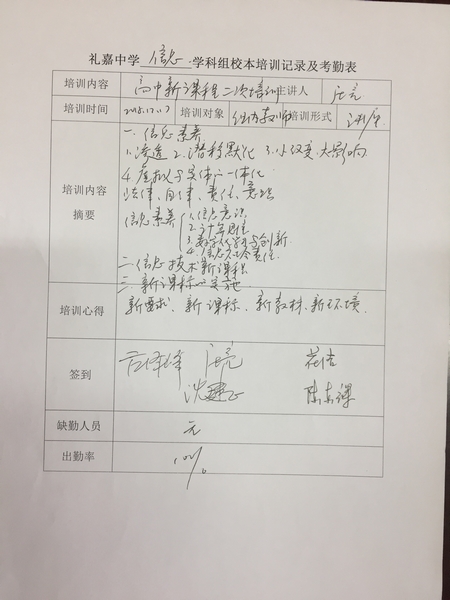 礼嘉中学 信息 学科组校本培训记录及考勤表
培训内容 高中新课程二次培训 主讲人 汪亮
培训时间 2018.12.17 培训对象 信息教师 培训形式 讲座
一、信息素养
1.渗透 2.潜移默化 3.小改变,大影响
4.虚拟与实体的一体化
法律、自律、责任、意识
培训内容
摘要
信息素养 1.信息意识
2.计算思维
3.数字化学习与创新
4.信息社会责任
二、信息技术新课标
三、新课标的实施
培训心得 新要求、新课标、新教材、新环境.
签到 汪亮
缺勤人员 无
出勤率 100%